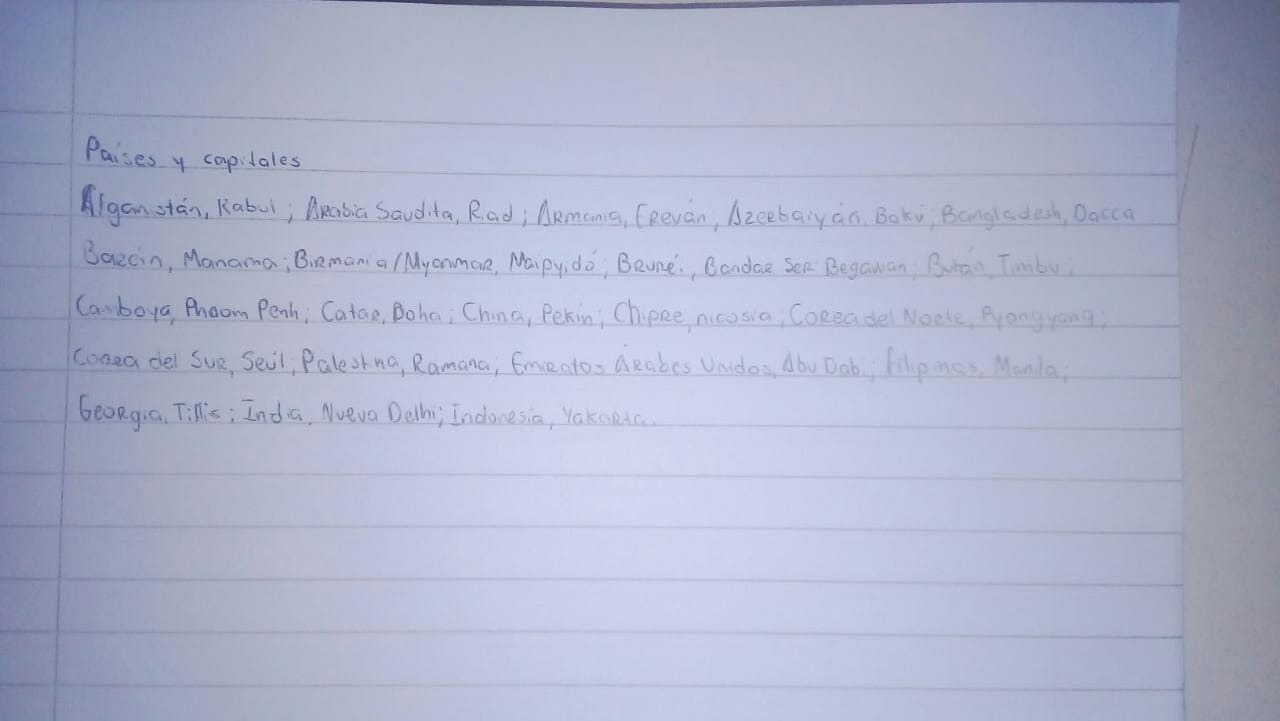 Países y capitales
Afganistán, Kabul; Arabia Saudita, Riad; Armenia, Ereván, Azerbaiyán, Bakú; Bangladesh, Dacca
Baréin, Manama; Birmania/Myanmar, Naipyidó; Bruné., Bandar Ser Begawan; Bután, Timbu.
Camboya, Phnom Penh; Catar, Doha; China, Pekín; Chipre, nicosia; Corea del Norte, Pyongyang;
Corea del Sur, Seúl; Palestina, Ramana; Emiratos Árabes Unidos, Abu Dabi; filipinas, Manila;
Georgia, Tiflis; India, Nueva Delhi; Indonesia, Yakarta.